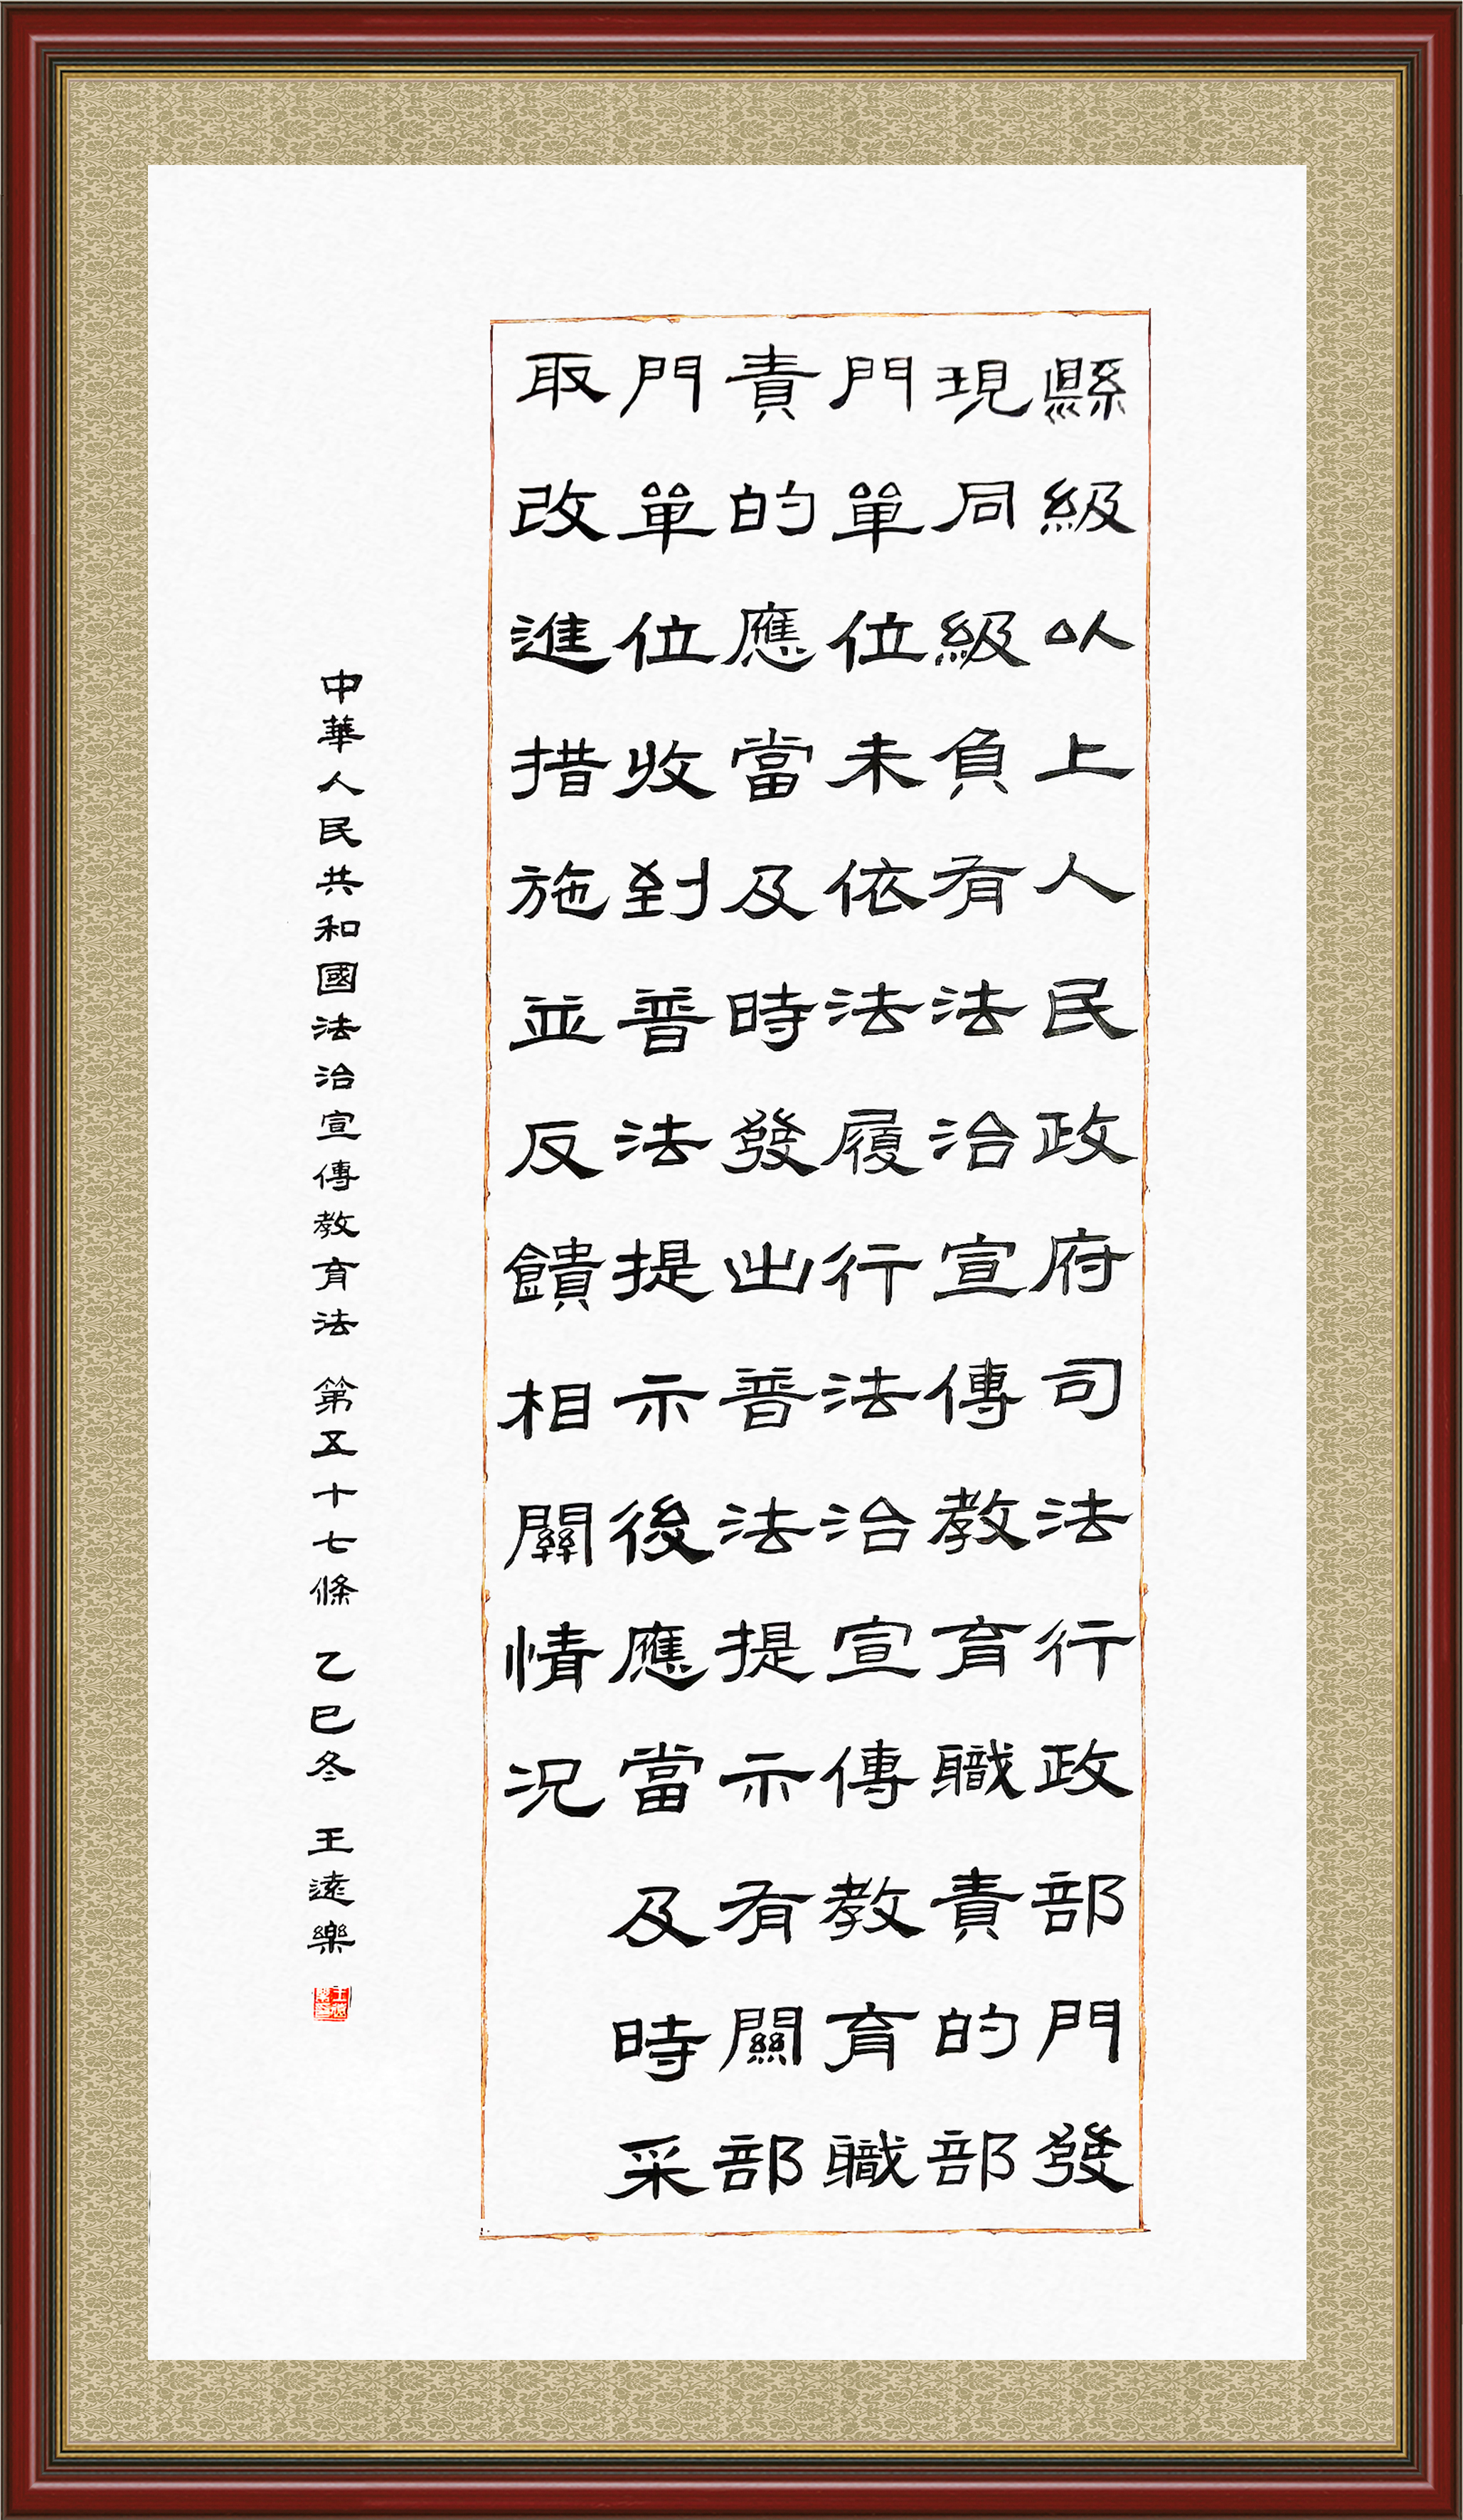 縣級以上人民政府司法行政部門發
現同級負有法治宣傳教育職責的部
門單位未依法履行法治宣傳教育職
責的應當及時發出普法提示有關部
門單位收到普法提示後應當及時采
取改進措施並反饋相關情况
中華人民共和國法治宣傳教育法 第五十七條 乙巳冬 王遠樂